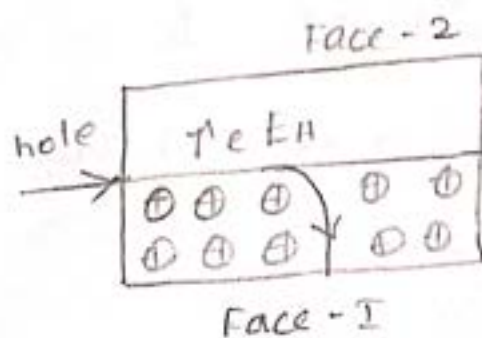 Face - 2
hole
↑ e EH
⊕ ⊕ ⊕ ⊕ ⊕
⊕ ⊕ ⊕ ⊕ ⊕
Face - I